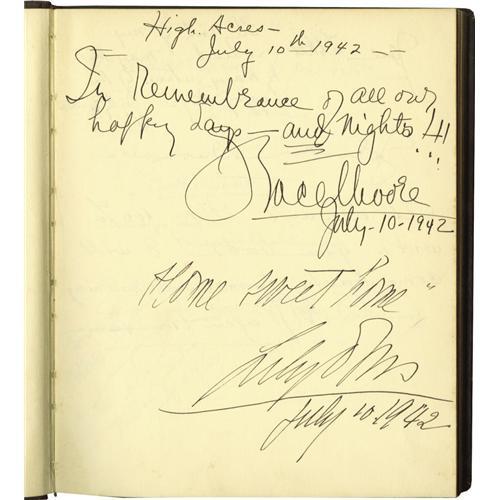 High Acres—
July 10th 1942 — –
In Remembrance of all our
happy days — and Nights !!!
Grace Moore
July-10-1942
Home sweet home"
Lily Pons
July 10, 1942